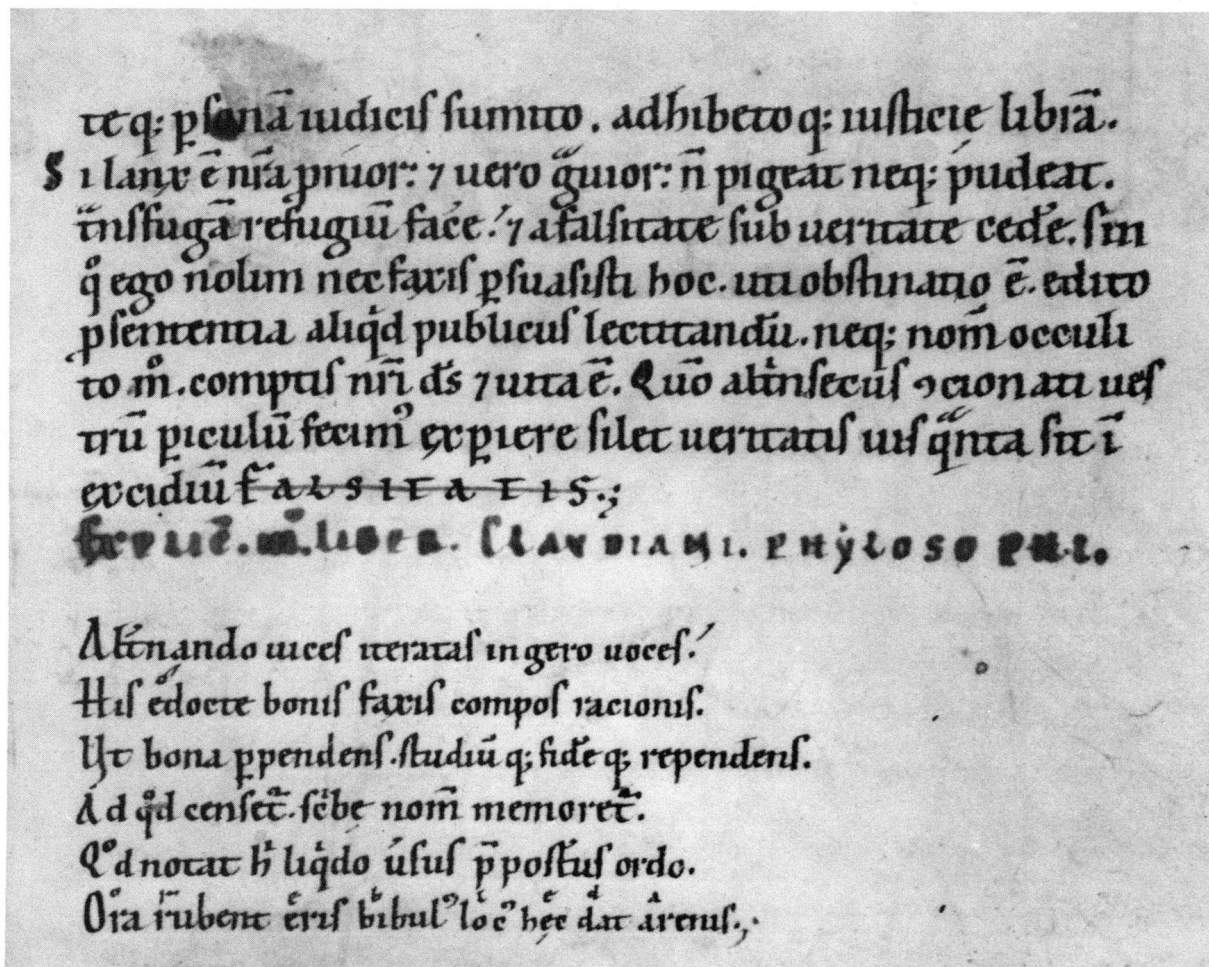 te q; p̱sonā iudicis sumito. adhibeto q; iusticię librā.
Si lanx ē nr̄a prıuor: ⁊ uero gͣuior: n̄ pigeat neq; pudeat.
tͣnsfugā refugiū fac̄e. ⁊ a falsitate sub ueritate ced̄e. sin
qͦ ego nolim nec faxis p̱suasisti hoc. uti obstinatio ē. edito
p̱ sententia aliqͥd publicus lectitandū. neq; nom̄ occuli
to m̊. comptis nr̄i ds̄ ⁊ uita ē. Quō alt̄insecus ꝯcionati ues
trū p̱iculū fecimꝰ exp̱iere silet ueritatis uis qͣnta sit ī
excidiū falsitatis.;
Explic̄. liber. Claudiani. phylosophi.
Alt̄nando uices iteratas ingero uoces.
His edocte bonis faxis compos racionis.
Ut bona p̱pendens. studiū q; fidē q; rependens.
Ad qͦd censet̄. sc̄be nom̄ memoret̄.
Qͦd notat h̄ liqͥdo ūsus p̄post̄us ordo.